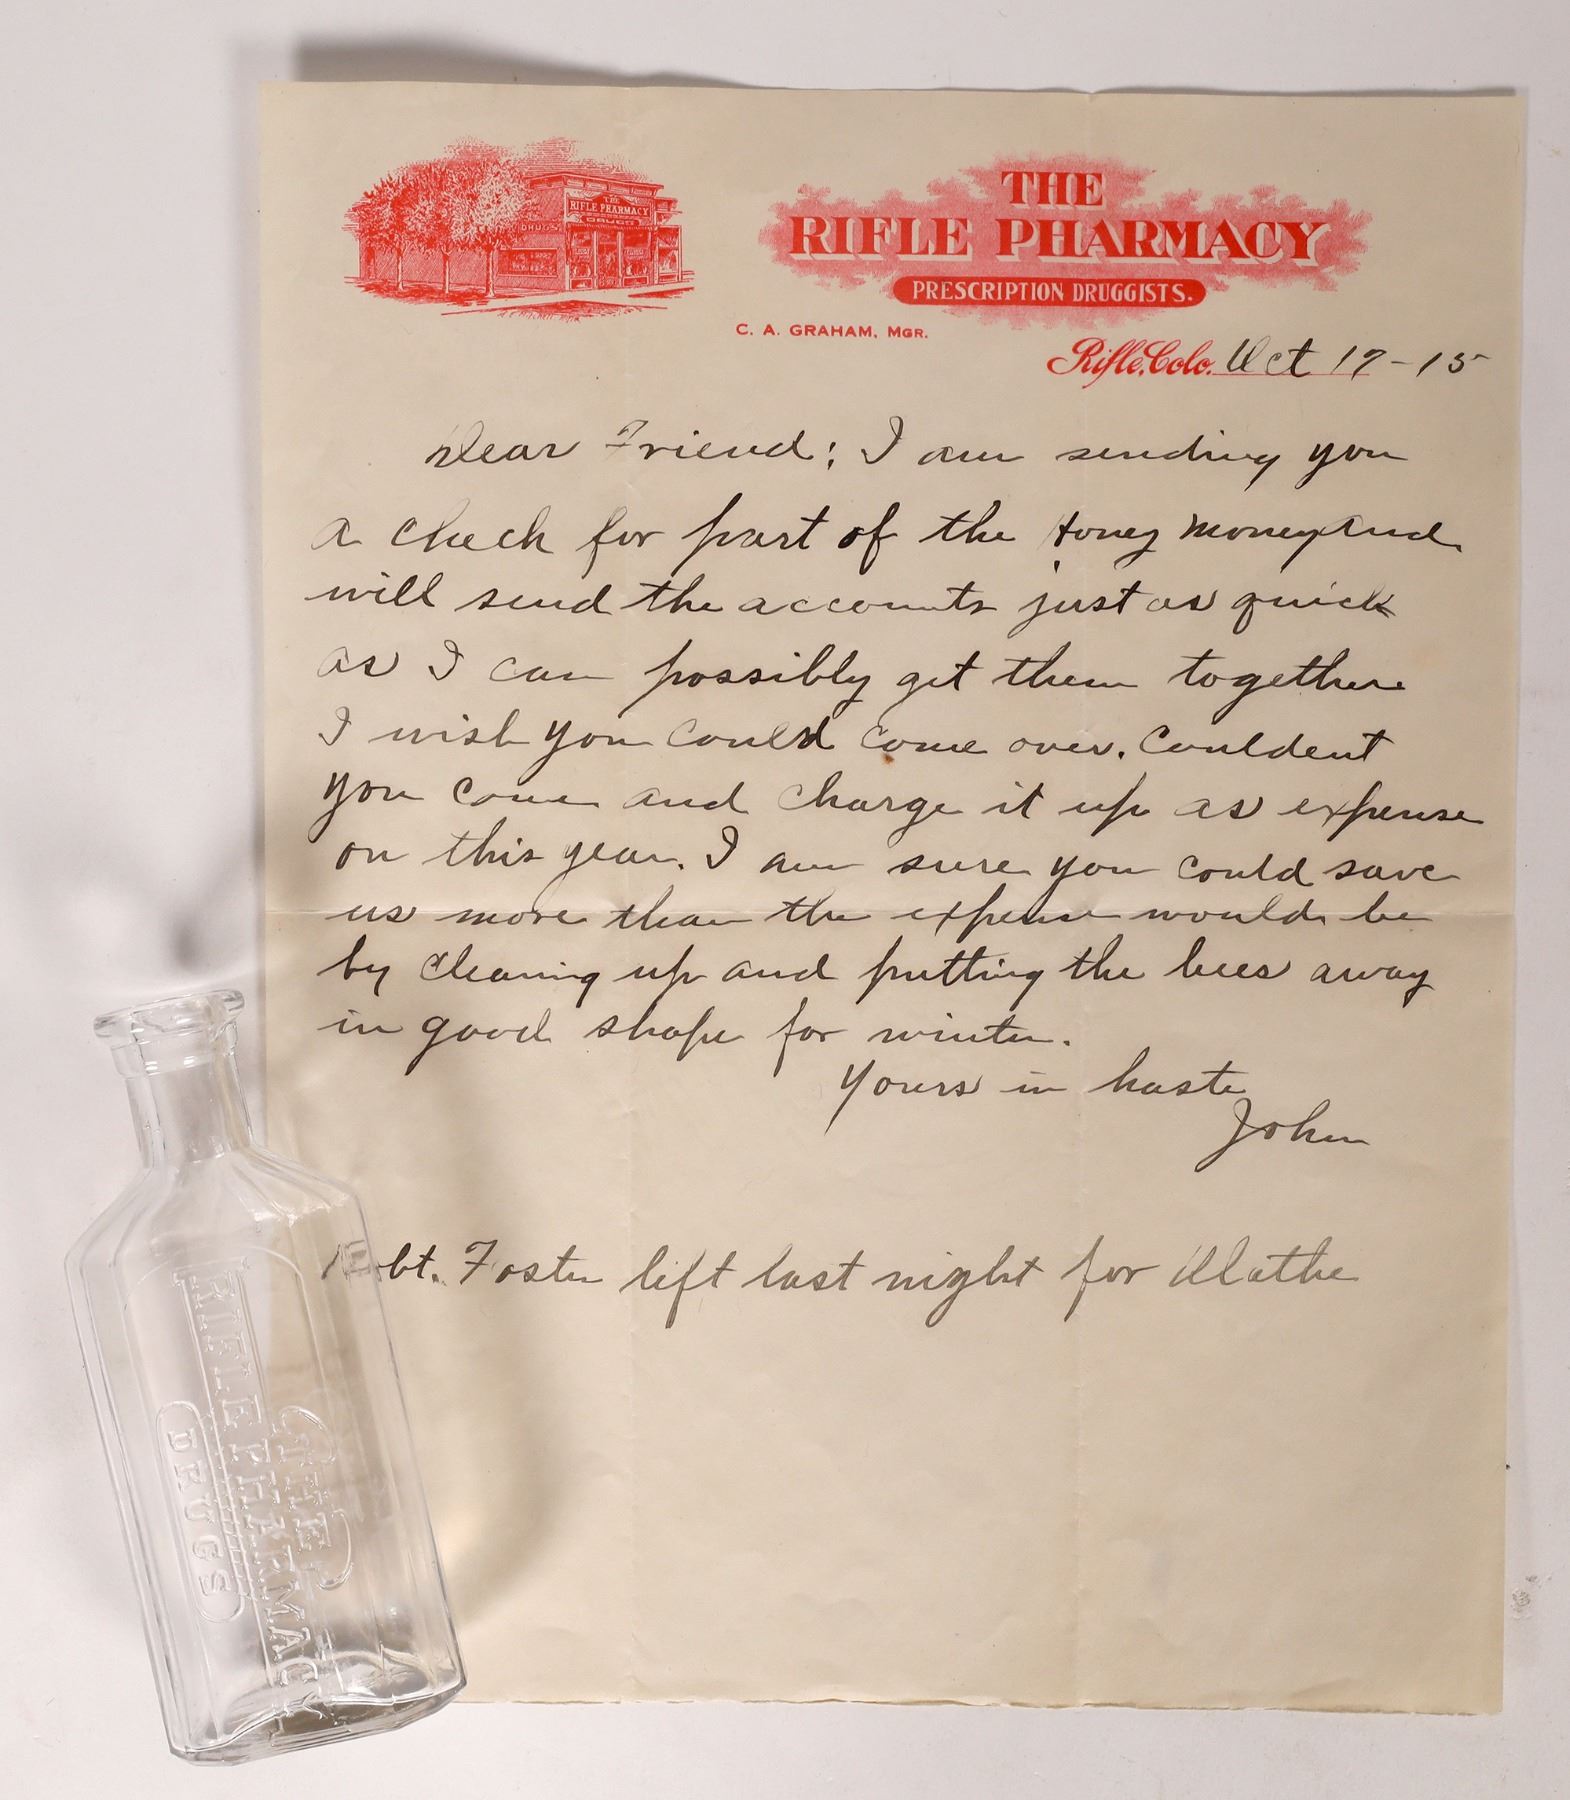 THE
RIFLE PHARMACY
DRUGS
DRUGS
THE
RIFLE PHARMACY
PRESCRIPTION DRUGGISTS.
C. A. GRAHAM, MGR.
Rifle, Colo. Oct 19-15
Dear Friend: I am sending you
a check for part of the Honey money and
will send the accounts just as quick
as I can possibly get them together
I wish you could come over. Couldent
you come and charge it up as expense
on this year. I am sure you could save
us more than the expense would be
by cleaning up and putting the bees away
in good shape for winter.
Yours in haste
John
Robt. Foster left last night for
THE
RIFLE PHARMACY
DRUGS